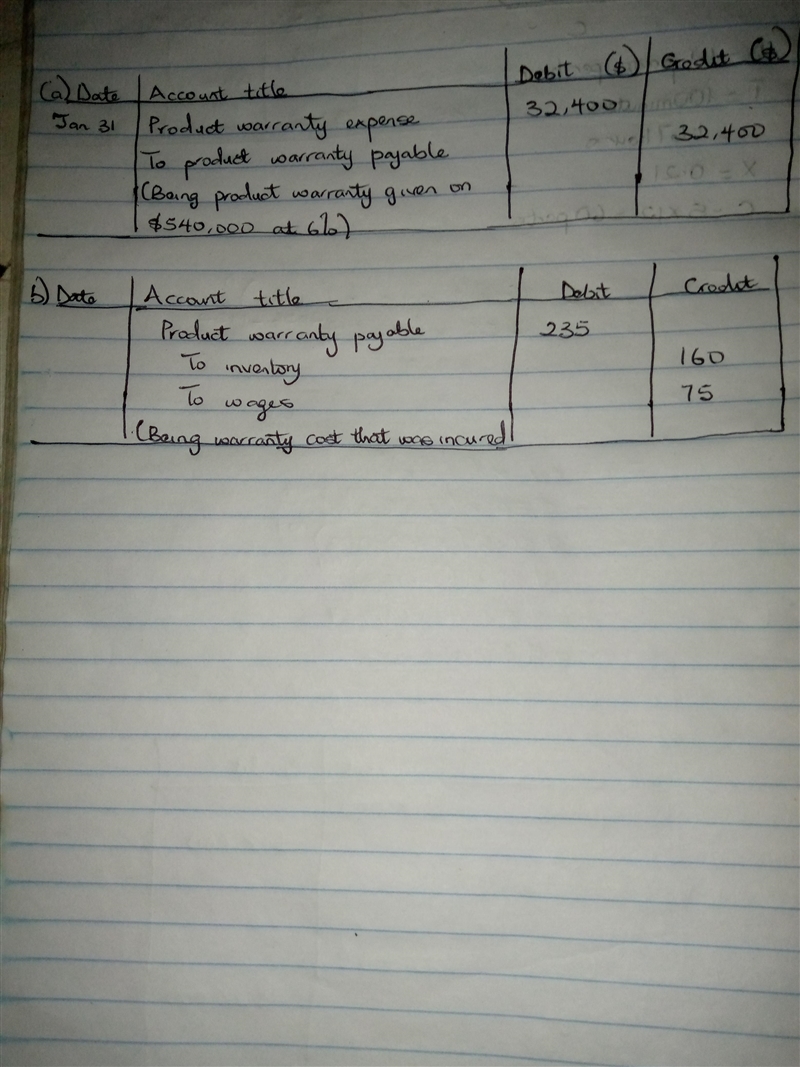 (a) Date Account title Debit ($) Credit ($)
Jan 31 Product warranty expense 32,400
To product warranty payable 32,400
(Being product warranty given on
$540,000 at 6%)
b) Date Account title Debit Credit
Product warranty payable 235
To inventory 160
To wages 75
(Being warranty cost that was incured